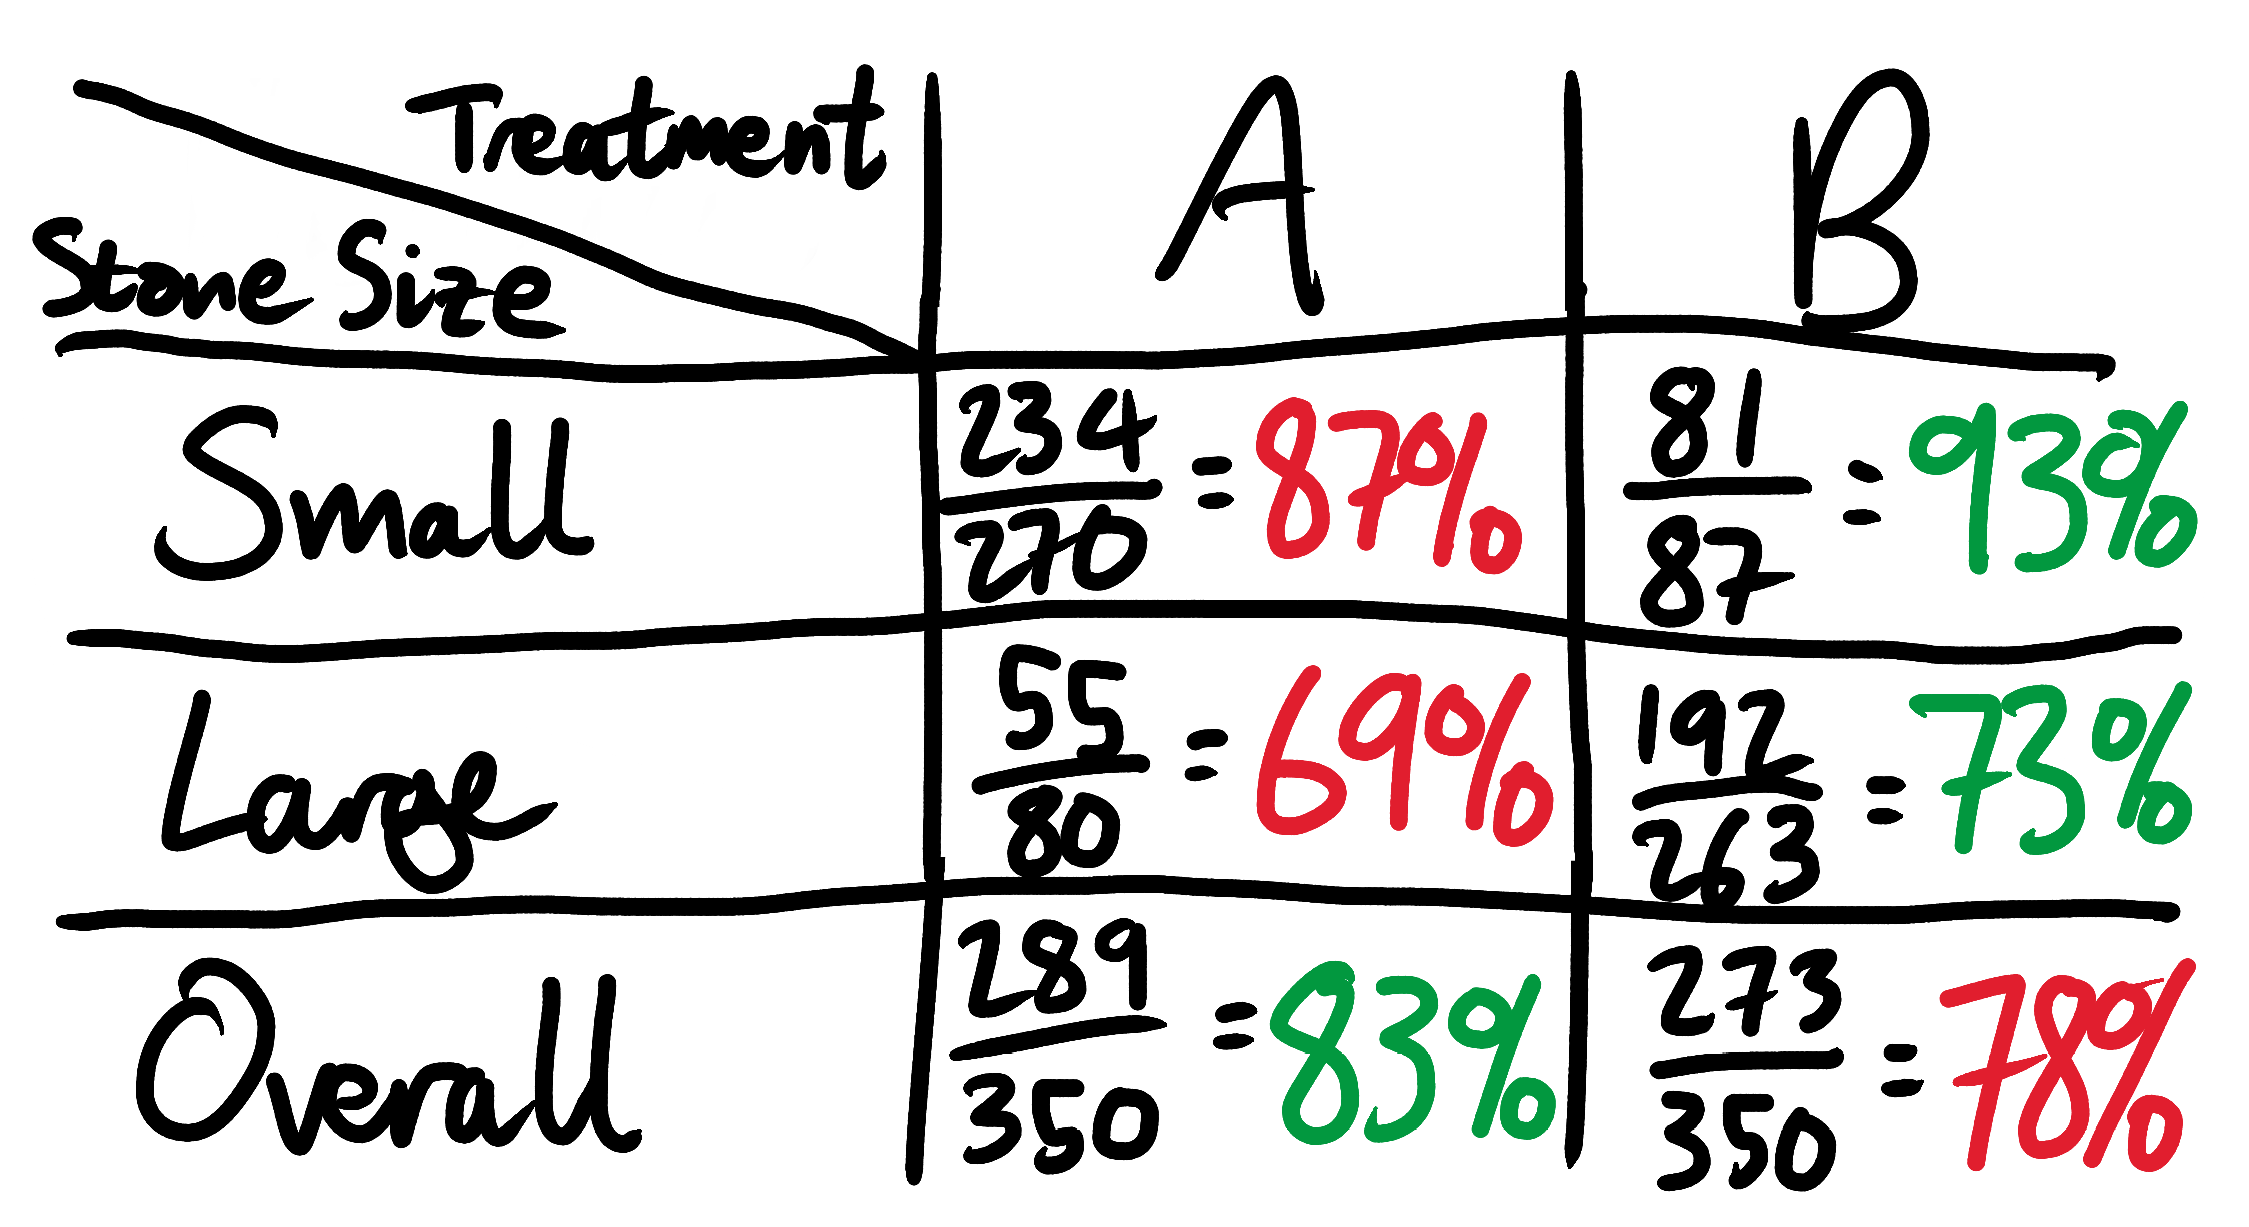 Treatment A B
Stone Size
Small 234/270 = 87% 81/87 = 93%
Large 55/80 = 69% 192/263 = 73%
Overall 289/350 = 83% 273/350 = 78%